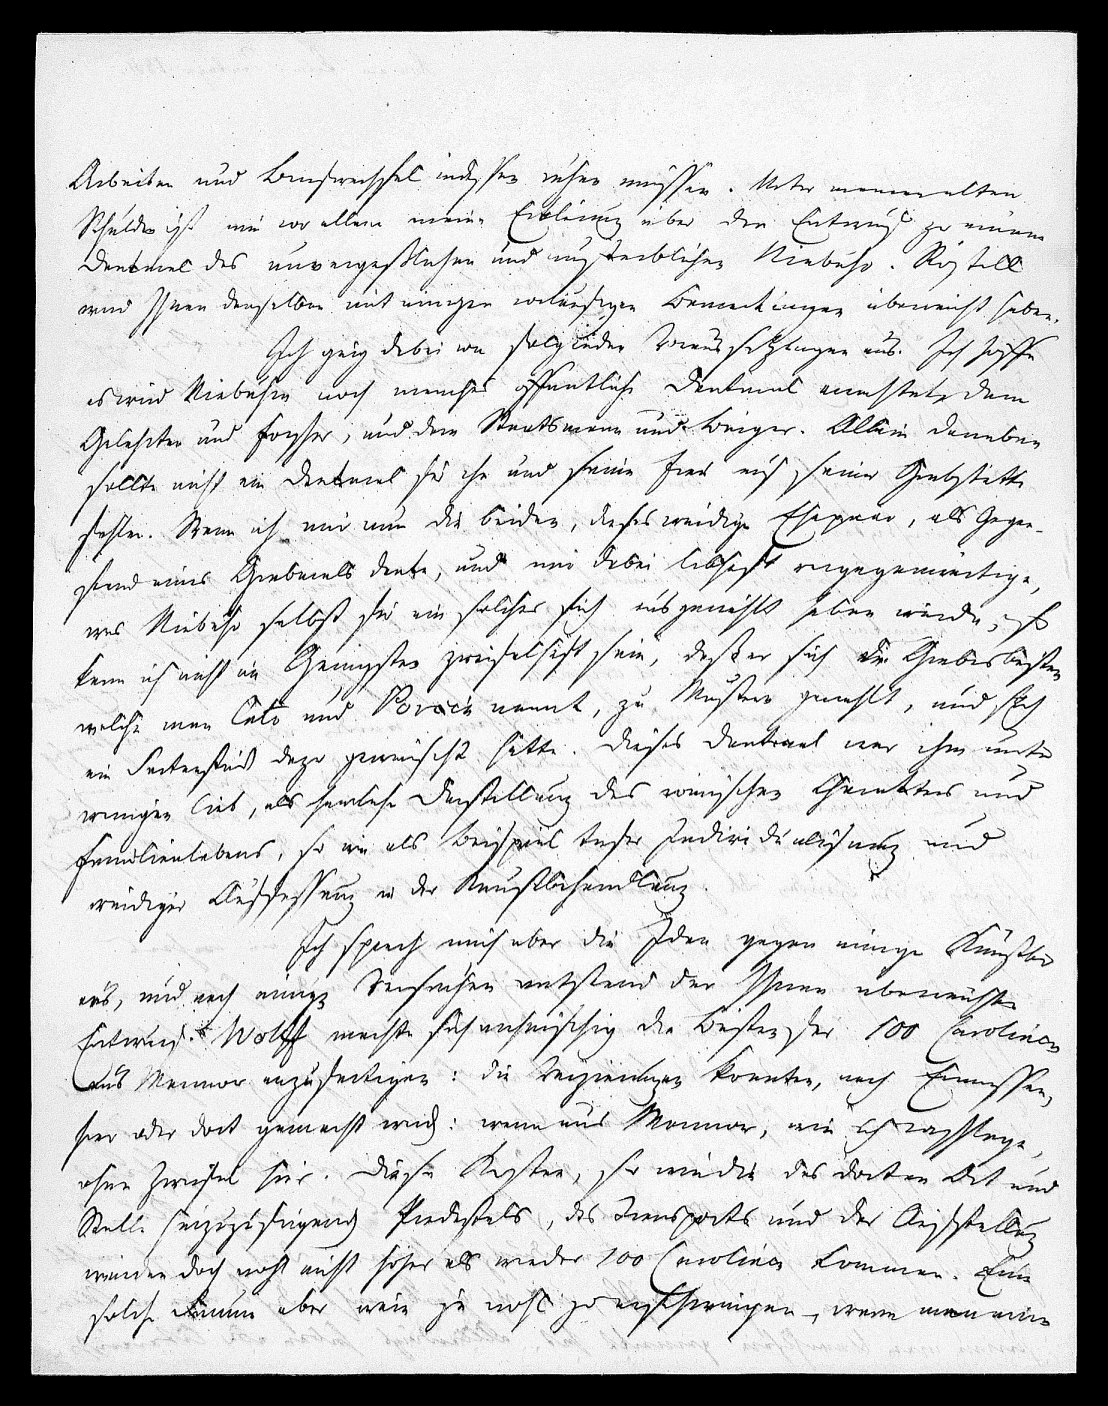 Arbeiten und Briefwechsel indessen ruhen müssen. Unter meinen alten
Schulden ist mir vor allem meine Erklärung über den Entwurf zu einem
Denkmal des unvergeßlichen und unsterblichen Niebuhr. Röstell
wird Ihnen denselben mit einigen vorläufigen Bemerkungen überreicht haben.
Ich ging dabei von folgenden Voraussetzungen aus. Ich hoffe
es wird Niebuhrn noch manches öffentliche Denkmal errichtet, dem
Gelehrten und Forscher, und dem Staatsmann und Bürger. Allein daneben
sollte nicht ein Denkmal für ihn und seine Frau auf seiner Grabstätte
fehlen. Wenn ich mir nun die beiden, dieses würdige Ehepaar, als Gegen-
stand eines Grabmals denke, und mir dabei lebhaft vergegenwärtige,
was Niebuhr selbst für ein solches sich ausgewählt haben würde, so
kann ich nicht im Geringsten zweifelhaft sein, daß er sich die Grabesbüsten
welche man Cato und Porcia nennt, zum Muster gewählt, und sich
ein Seitenstück dazu gewünscht hätte. Dieses Denkmal war ihm unter
wenigen lieb, als herrliche Darstellung des römischen Charakters und
Familienlebens, so wie als Beispiel tiefer Individualisirung und
würdiger Auffassung in der Kunstbehandlung.
Ich sprach mich über die Idee gegen einige Künstler
aus, und nach einigen Versuchen entstand der Ihnen überreichte
Entwurf. Wolff machte sich anheischig die Büsten für 100 Carolinen
aus Marmor anzufertigen: die Verzierungen konnten, nach Ermessen,
hier oder dort gemacht werden: wenn aus Marmor, wie ich vorschlage,
ohne Zweifel hier. Diese Kosten, so wie die des dort an Ort und
Stelle hinzuzufügenden Piedestals, des Transports und der Aufstellung
würden doch wohl nicht höher als wieder 100 Carolinen kommen. Eine
solche Summe aber wäre ja wohl zu erschwingen, wenn man eine